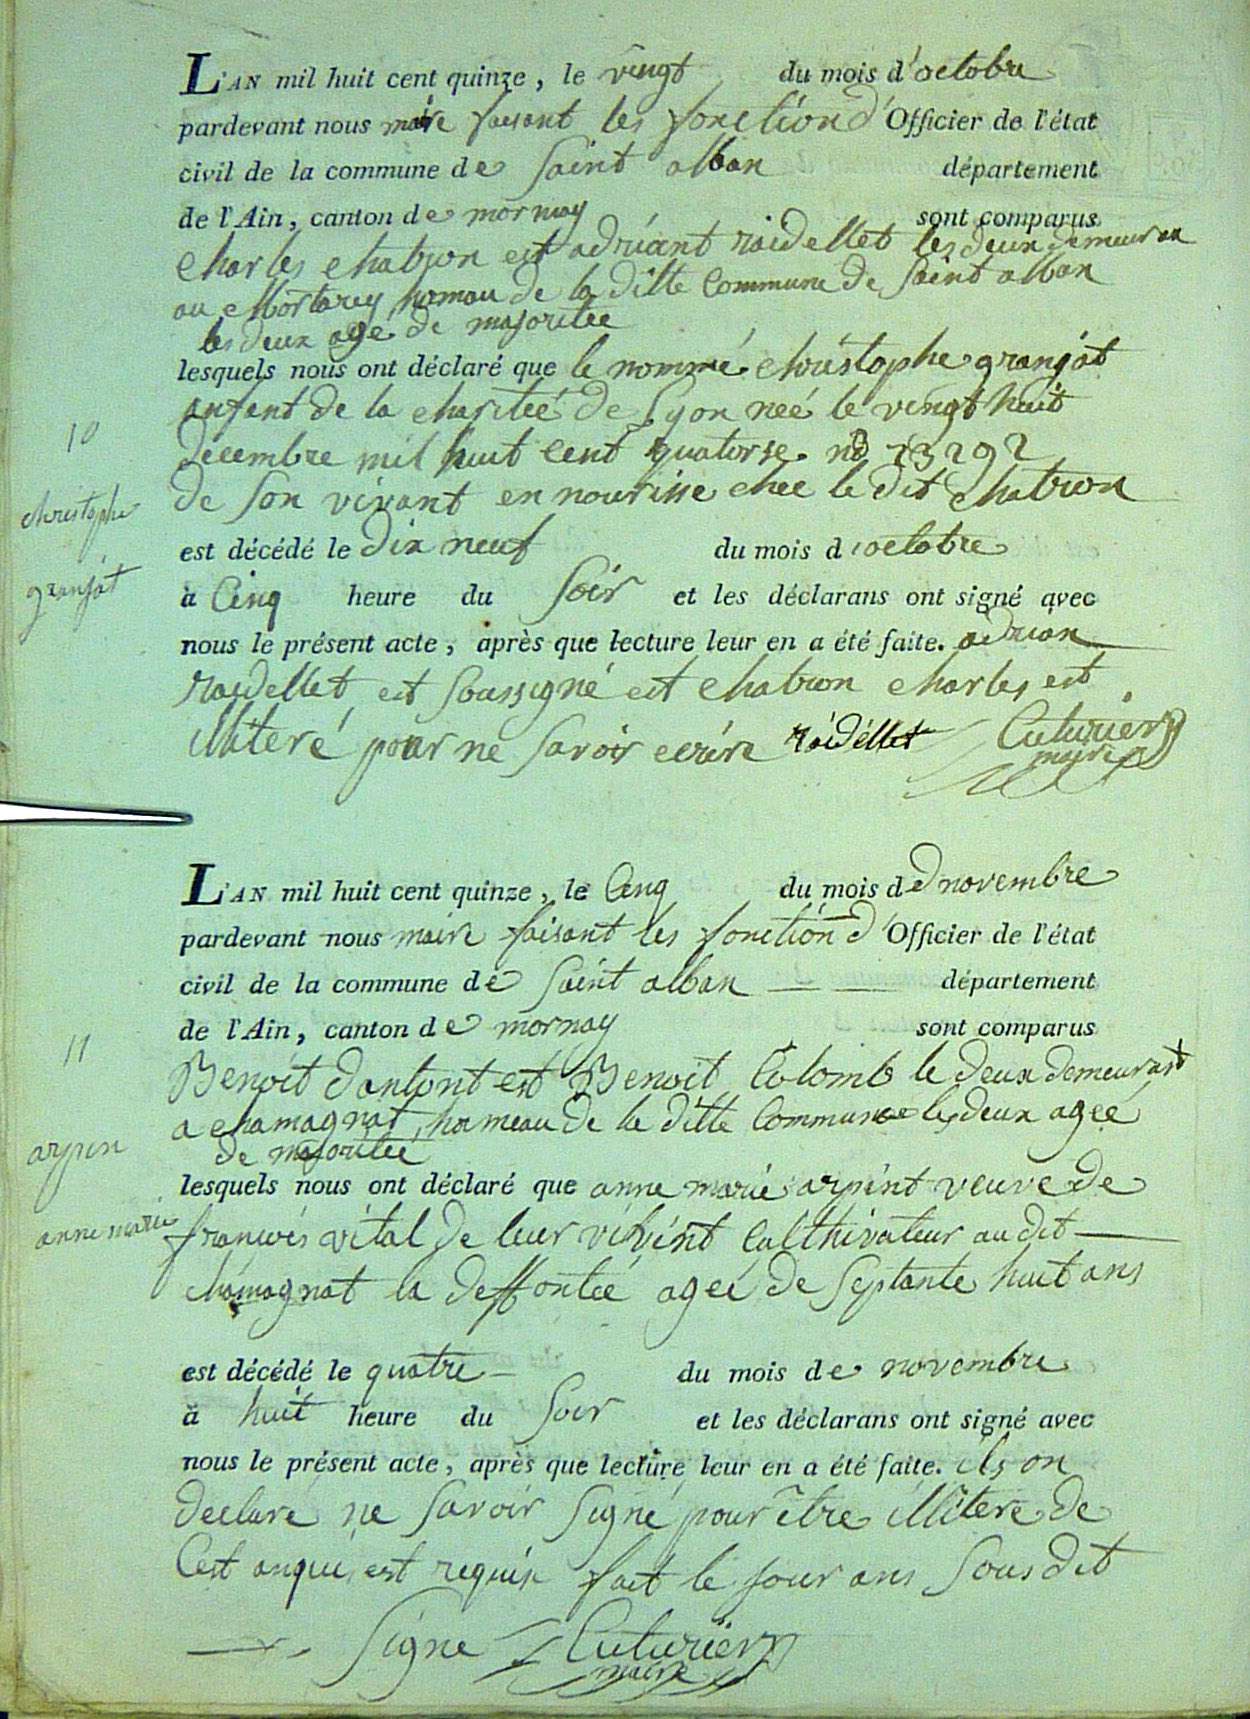 L'AN mil huit cent quinze, le vingt du mois d'octobre
pardevant nous maire faisant les fonction d'Officier de l'état
civil de la commune de Saint alban département
de l'Ain, canton de mornay sont comparus
Charles Chatron est adriant raidellet les deux demeuran
au Mortarey hamau de la ditte Commune de Saint alban
les deux agé de majoritée
lesquels nous ont déclaré que le nommé christophe granjat
anfent de la charitée de Lyon neé le vingt huit
decembre mil huit cent quatorse. no 23292
de Son vivant en nourisse chee le dit Chatron
10
christophe
granjat
est décédé le dix neuf du mois d'octobre
à Cinq heure du Soir et les déclarans ont signé avec
nous le présent acte, après que lecture leur en a été faite. adrian
Raidellet est Soussigné est Chatron Charles est
illiteré pour ne Savoir ecrire raidéllet Cuturier
maire
L'AN mil huit cent quinze, le Cinq du mois de novembre
pardevant nous maire faisant les fonction d'Officier de l'état
civil de la commune de Saint alban département
de l'Ain, canton de mornay sont comparus
Benoit dantont est Benoit Colomb le deux demeurant
a chamagnat hameau de la ditte Commune les deux ageé
de majoritée
11
arpin
anne marie
lesquels nous ont déclaré que anne marie arpint veuve de
francois vital de leur vivint Culthivateur au dit
chamagnat la deffontée ageé de Septante huit ans
est décédé le quatre du mois de novembre
à huit heure du Soir et les déclarans ont signé avec
nous le présent acte, après que lecture leur en a été faite. ils on
declare ne Savoir Signé pour être illitere de
Cest anqui est requis fait le jour ans Sous dit
Signe Cuturier
maire